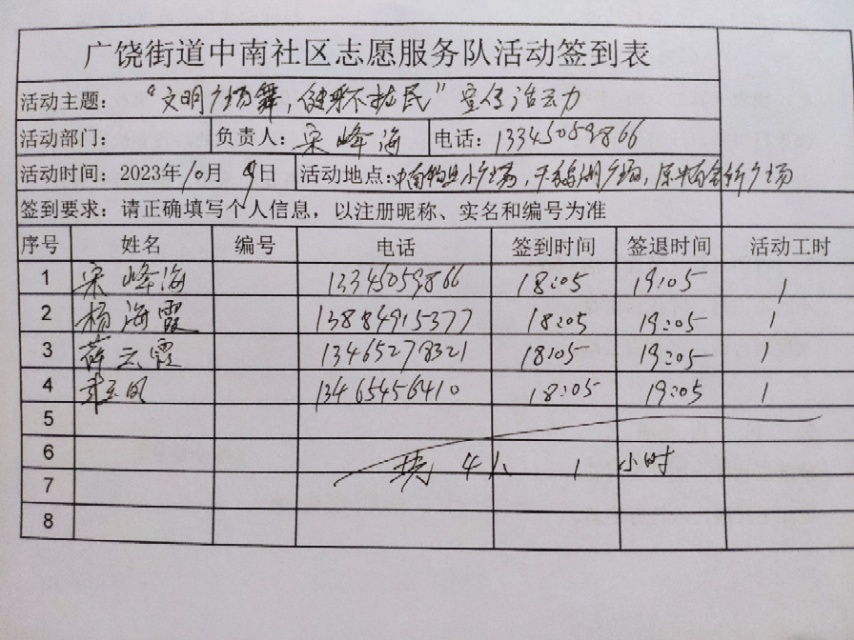 广饶街道中南社区志愿服务队活动签到表
活动主题：“文明广场舞，健康不扰民”宣传活动
活动部门： 负责人：宋峰海 电话：13345059866
活动时间：2023年10月9日 活动地点：中南物业小广场，
签到要求：请正确填写个人信息，以注册昵称、实名和编号为准
序号 姓名 编号 电话 签到时间 签退时间 活动工时
1 宋峰海 13345059866 18:05 19:05 1
2 杨海霞 13884915377 18:05 19:05 1
3 薛云霞 13465278321 18:05 19:05 1
4 13465456410 18:05 19:05 1
5
6 共4人 1小时
7
8